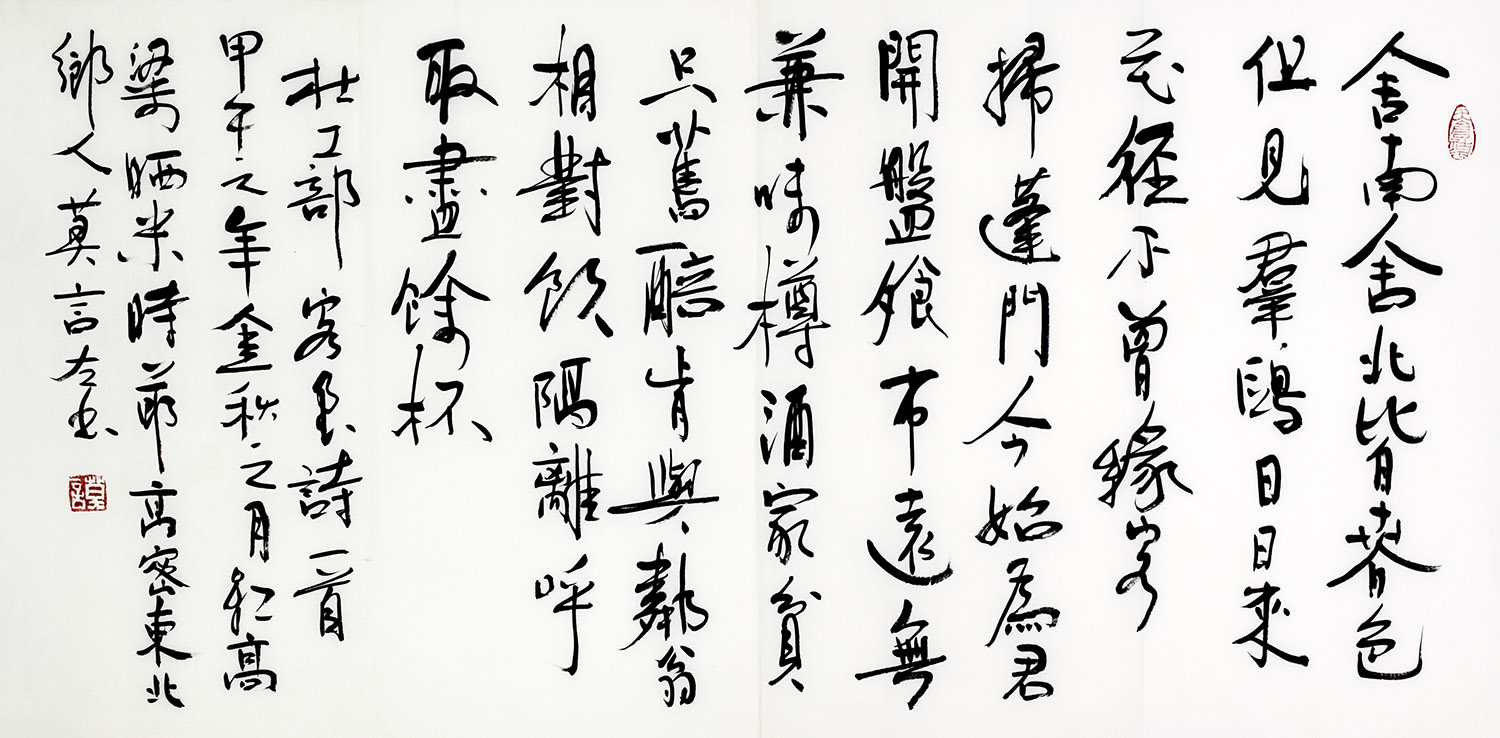 舍南舍北皆春色
但見羣鷗日日來
花徑不曾緣客
掃蓬門今始爲君
開盤飧市遠無
兼味樽酒家貧
只舊醅肯與鄰翁
相對飲隔離呼
取盡餘杯
杜工部客至詩一首
甲午之年金秋之月紅高
粱晒米時節高密東北
鄉人莫言左书
莫言